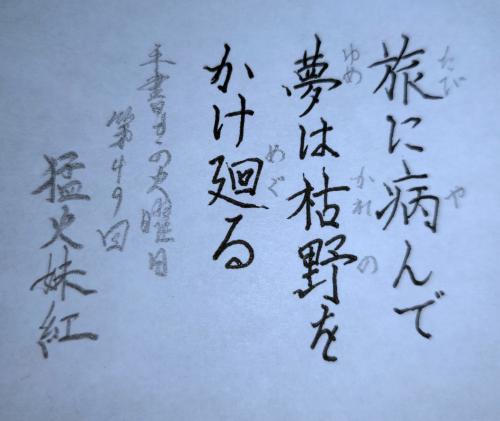 旅に病んで
たび
や
夢は枯野を
ゆめ
かれ
の
かけ廻る
めぐ
手書きの火曜日
第49回
猛火妹紅